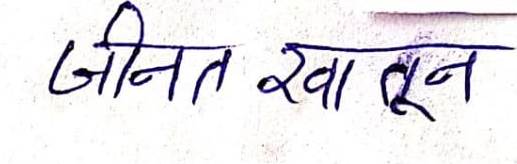 जीनत खातून